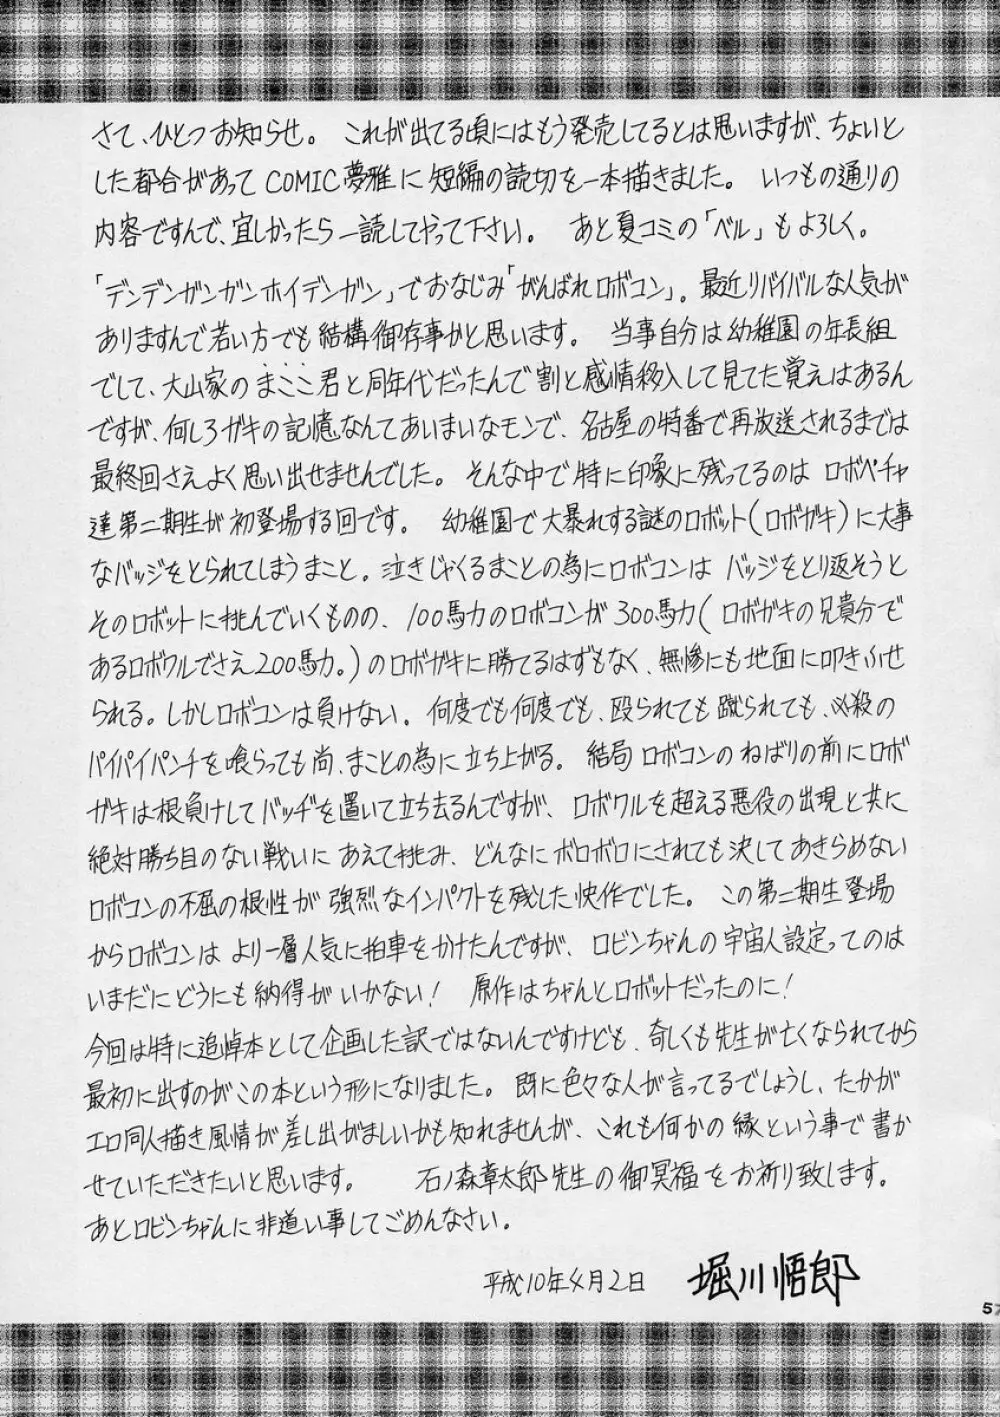 さて、ひとつお知らせ。 これが出てる頃にはもう発売してるとは思いますが、ちょいと
した都合があってCOMIC夢雅に短編の読切を一本描きました。 いつもの通りの
内容ですんで、宜しかったら一読してやって下さい。 あと夏コミの「ベル」もよろしく。
「デンデンガンガンホイデンガン」でおなじみ「がんばれロボコン」。最近リバイバルな人気が
ありますんで若い方でも結構御存事かと思います。 当事自分は幼稚園の年長組
でして、大山家のまここ君と同年代だったんで割と感情移入して見てた覚えはあるん
ですが、何しろガキの記憶なんてあいまいなモンで、名古屋の特番で再放送されるまでは
最終回さえよく思い出せませんでした。そんな中で特に印象に残ってるのはロボペチャ
達第二期生が初登場する回です。 幼稚園で大暴れする謎のロボット(ロボガキ)に大事
なバッジをとられてしまうまこと。泣きじゃくるまことの為にロボコンはバッジをとり返そうと
そのロボットに挑んでいくものの、100馬力のロボコンが300馬力(ロボガキの兄貴分で
あるロボワルでさえ200馬力。)のロボガキに勝てるはずもなく、無惨にも地面に叩きふせ
られる。しかしロボコンは負けない。何度でも何度でも、殴られても蹴られても、必殺の
パイパイパンチを喰らっても尚、まことの為に立ち上がる。 結局ロボコンのねばりの前にロボ
ガキは根負けしてバッヂを置いて立ち去るんですが、ロボワルを超える悪役の出現と共に
絶対勝ち目のない戦いにあえて挑み、どんなにボロボロにされても決してあきらめない
ロボコンの不屈の根性が強烈なインパクトを残した快作でした。 この第二期生登場
からロボコンはより一層人気に拍車をかけたんですが、ロビンちゃんの宇宙人設定ってのは
いまだにどうにも納得がいかない! 原作はちゃんとロボットだったのに!
今回は特に追悼本として企画した訳ではないんですけども、奇しくも先生が亡くなられてから
最初に出すのがこの本という形になりました。既に色々な人が言ってるでしょうし、たかが
エロ同人描き風情が差し出がましいかも知れませんが、これも何かの縁という事で書か
せていただきたいと思います。 石ノ森章太郎先生の御冥福をお祈り致します。
あとロビンちゃんに非道い事してごめんなさい。
平成10年4月2日 堀川悟郎
57